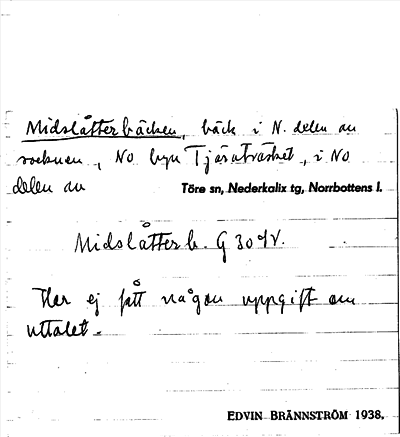 Midslåtterbäcken, bäck i N. delen av
socknen, NO byn Tjäruträsket, i NO
delen av Töre sn, Nederkalix tg, Norrbottens l.
Midslåtterb. G 30 dV.
Har ej fått någon uppgift om
uttalet.
EDVIN BRÄNNSTRÖM 1938.